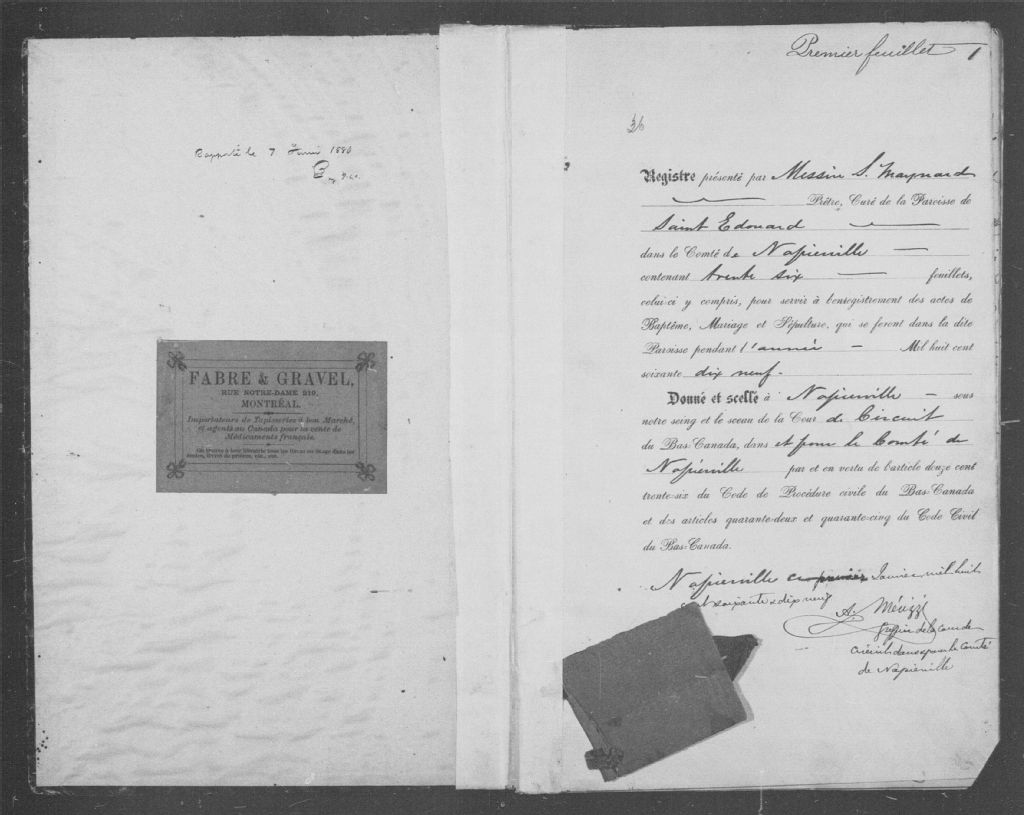 Rapporté le 7 1880
FABRE & GRAVEL,
RUE NOTRE-DAME 219,
MONTRÉAL.
Importateurs de Tapisseries à bon Marché,
et agents au Canada pour la vente de
Médicaments français.
On trouve à leur librairie tous les livres en usage dans les
écoles, livres de prières, etc., etc.
Premier feuillet 1
36
Registre présenté par Messire S. Maynard
Prêtre, Curé de la Paroisse de
Saint Edouard
dans le Comté de Napierville
contenant trente six feuillets,
celui-ci y compris, pour servir à l'enregistrement des actes de
Baptême, Mariage et Sépulture, qui se feront dans la dite
Paroisse pendant l'année Mil huit cent
soixante dix neuf.
Donné et scellé à Napierville sous
notre seing et le sceau de la Cour de Circuit
du Bas-Canada, dans et pour le Comté de
Napierville par et en vertu de l'article douze cent
trente-six du Code de Procédure civile du Bas-Canada
et des articles quarante-deux et quarante-cinq du Code Civil
du Bas-Canada.
Napierville ce premier Janvier mil huit
cent soixante & dix neuf
A. Mérizzi
Greffier de la cour de
circuit dans & pour le Comté
de Napierville